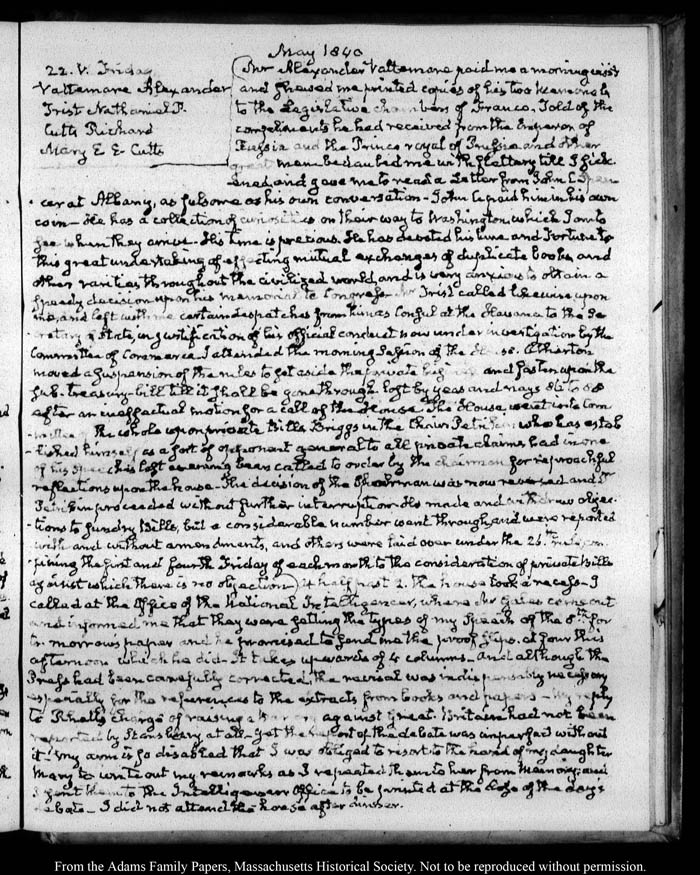 May 1840
22. V. Friday
Vattemare Alexander
Trist Nathaniel P.
Cutts Richard
Mary E E Cutts
Mr Alexander Vattemare paid me a morning visit
and shewed me printed copies of his two Memorials
to the Legislative chambers of France. Told of the
compliments he had received from the Emperor of
Russia and the Prince royal of Prussia and other
great men bedaubed me with flattery till I sick-
ened, and gave me to read a Letter from John C Spen-
cer at Albany, as fulsome as his own conversation – John C paid him in his own
coin – He has a collection of curiosities on their way to Washington, which I am to
see when they arrive. His time is precious. He has devoted his time and Fortune to
this great undertaking of effecting mutual exchanges of duplicate books, and
other rarities, throughout the civilized world, and is very anxious to obtain a
speedy decision upon his memorial to Congress – Mr Trist called likewise upon
me, and left with me certain despatches from him as Consul at the Havanna to the Se-
cretary of State, in justification of his official conduct now under investigation by the
Committee of Commerce. I attended the morning Session of the House. Atherton
moved a suspension of the rules to set aside the private and fasten upon the
Sub-treasury-bill till it shall be gone through. lost by yeas and nays 86 to 58
after an ineffectual motion for a call of the House. The House went into Com-
mittee of the whole upon private Bills. Briggs in the Chair. Petrikin who has estab-
lished himself as a sort of opponent general to all private claims had in one
of his speeches last evening been called to order by the chairman for reproachful
reflections upon the house – The decision of the Chairman was now reversed and Dr
Petrikin proceeded without further interruption. He made and withdrew objec-
tions to sundry Bills, but a considerable number went through, and were reported
with and without amendments, and others were laid over under the 26th rule,
the first and fourth Friday of each month to the consideration of private Bills
against which there is no objection) At half past 2. the house took a recess – I
called at the Office of the National Intelligencer, where Mr Gales came out
and informed me that they were setting the types of my Speech of the 8th for
to morrow's paper and he promised to send me the proof slips. at four this
afternoon which he did – It takes upwards of 4 columns – And although the
Press had been carefully corrected, the revisal was indispensably necessary
especially for the references to the extracts from books and papers – My reply
to Rhett's charge of raising a war cry against Great-Britain had not been
reported by Stansbury at all – yet the report of the debate was imperfect without
it – my arm is so disabled that I was obliged to resort to the hand of my daughter
Mary to write out my remarks as I repeated them to her from Memory; and
I sent them to the Intelligencer Office to be printed at the close of the days
debate – I did not attend the house after dinner.
From the Adams Family Papers, Massachusetts Historical Society. Not to be reproduced without permission.